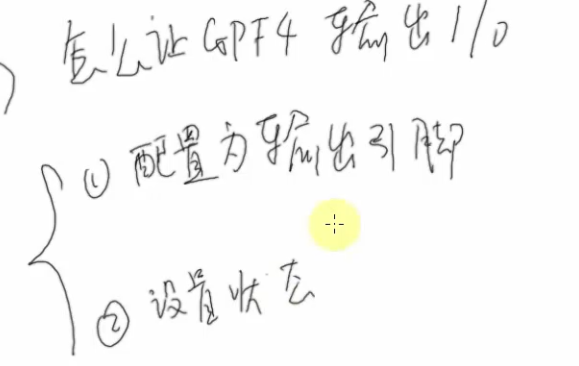 怎么让GPF4输出1/0
① 配置为输出引脚
② 设置状态